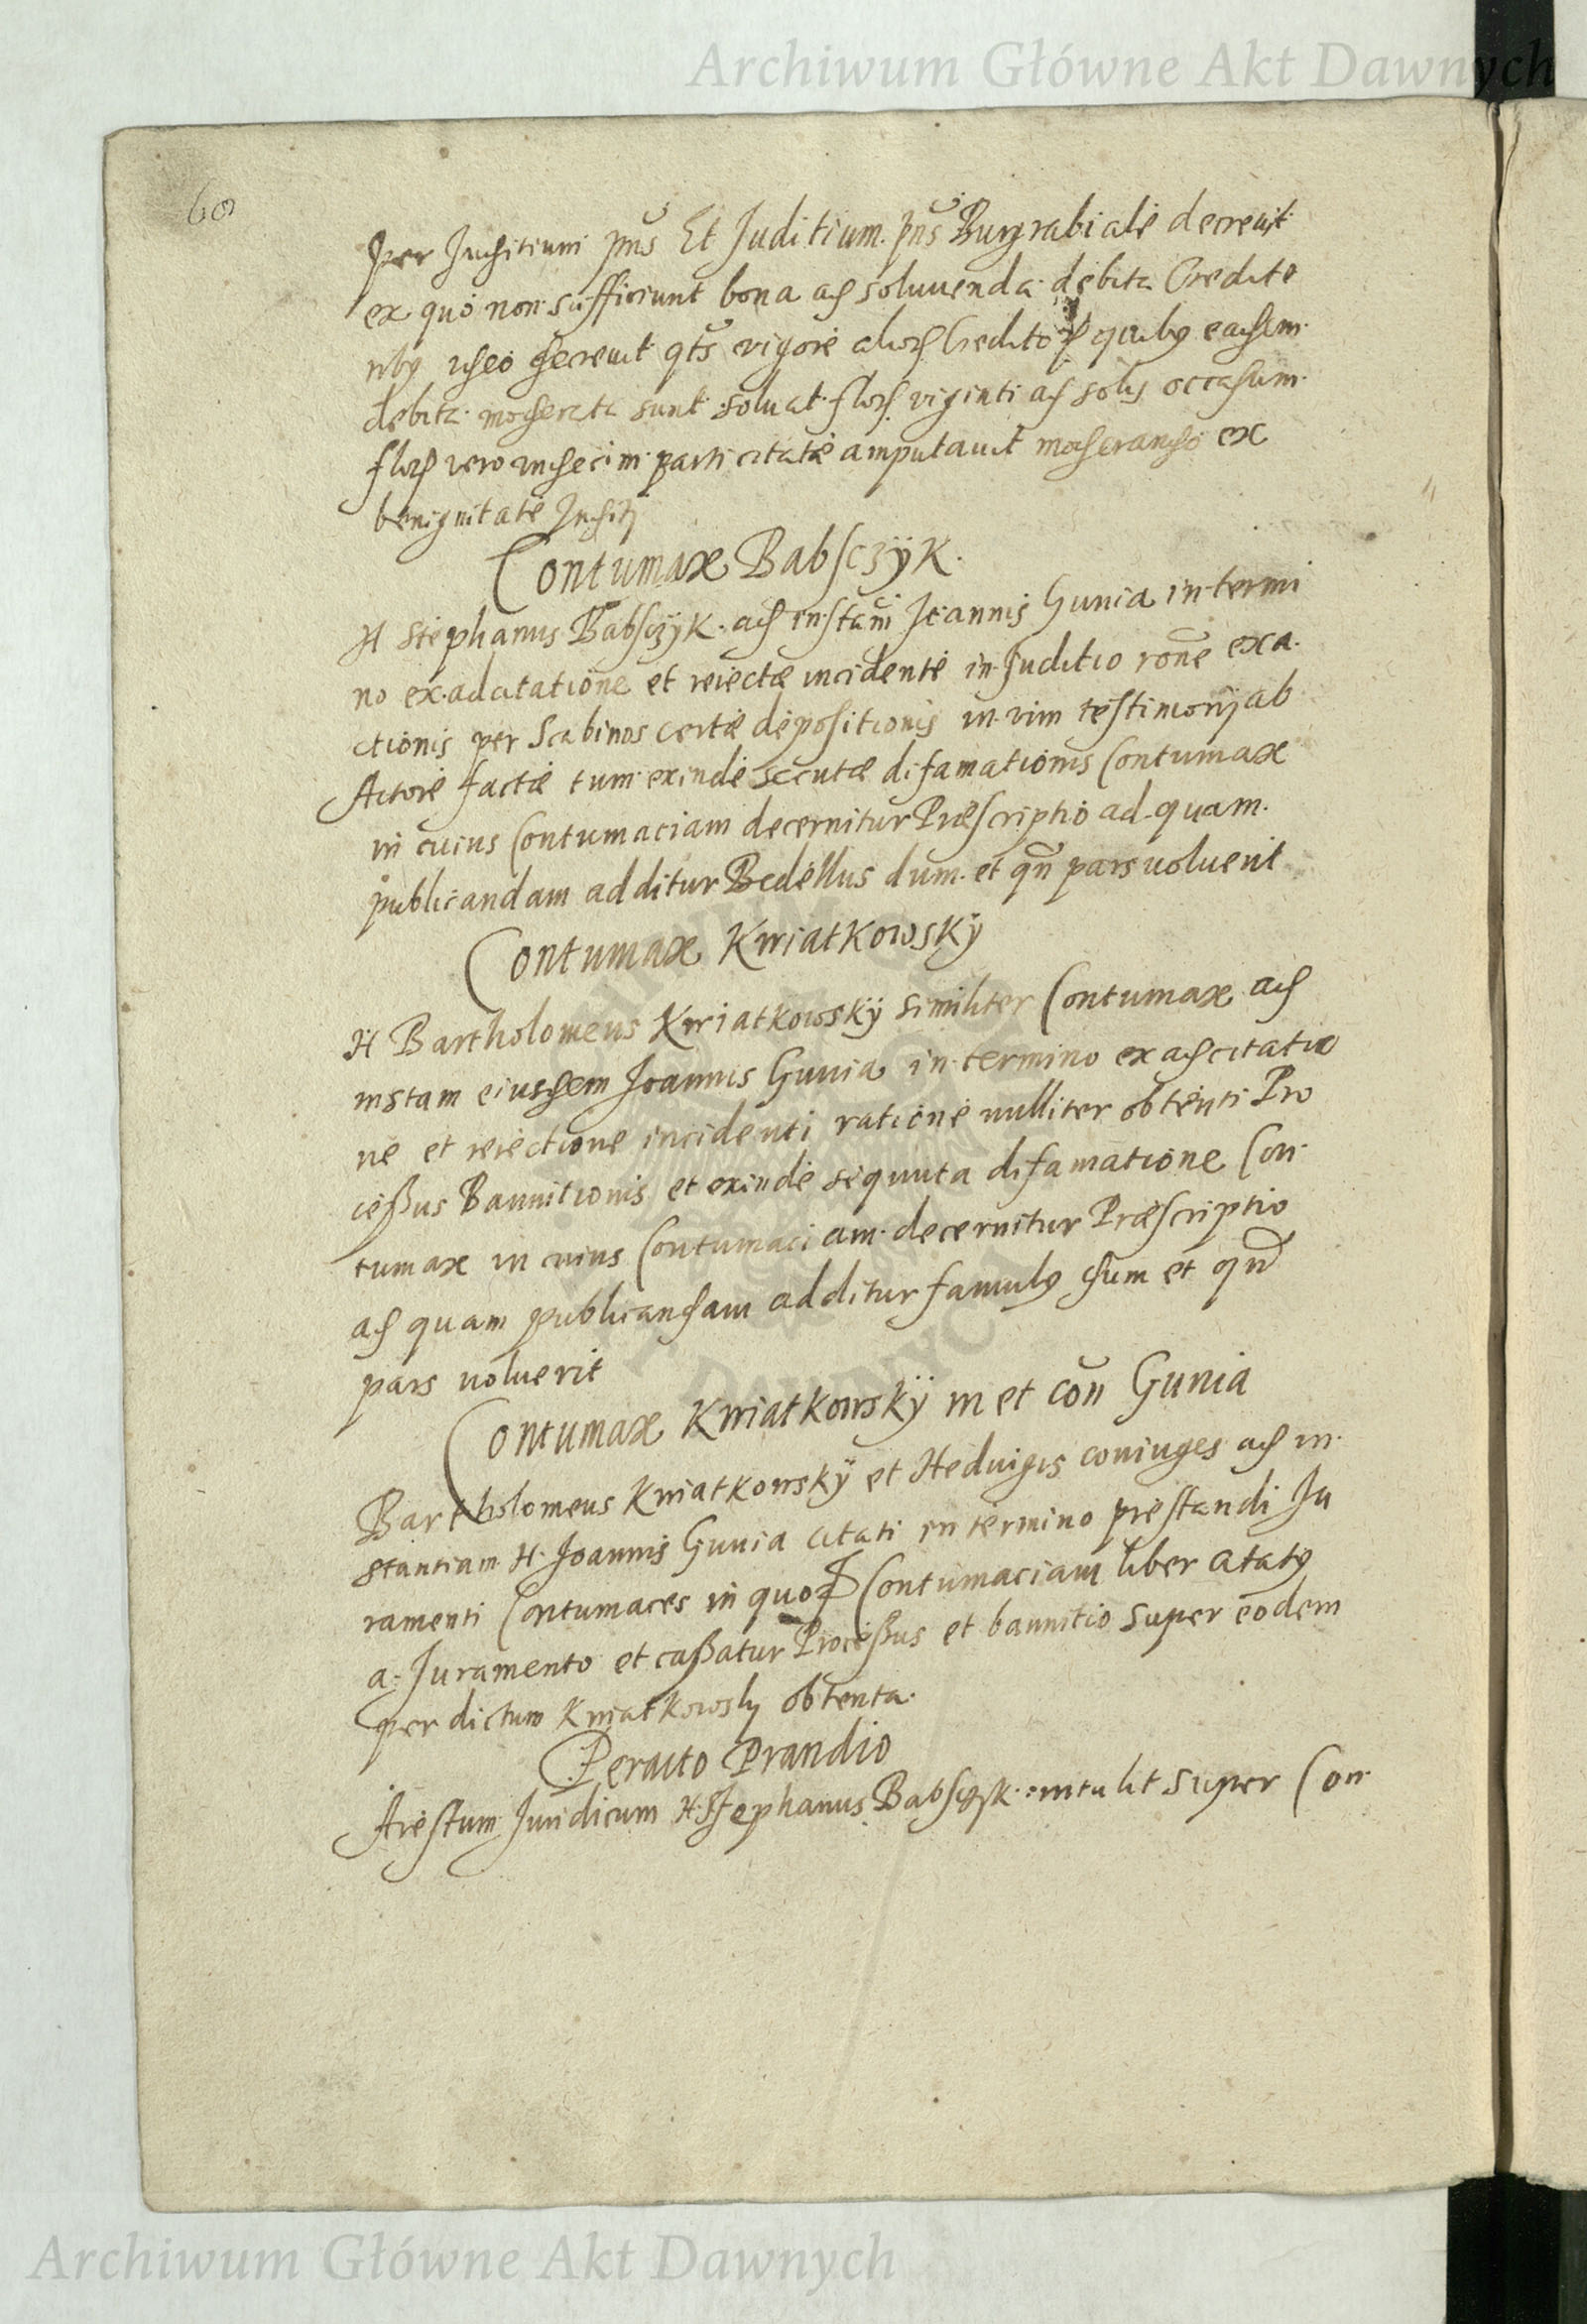 Archiwum Główne Akt Dawnych
60
per Juditium pn̄s Et Juditium pn̄s Burgrabiale decreuit
ex quo non sufficiunt bona ad soluuenda debita Credito
ribꝰ ideo decreuit qt̄s vigore alioꝝ Creditoꝝ quibꝰ eadem
debita moderata sunt soluat floꝝ viginti ad solis occasum
floꝝ vero undecim parti citatæ amputauit moderando ex
benignitate Juditij
Contumax Babsczÿk.
H Stephanus Babsczÿk ad instam̄ Joannis Gunia in termi
no ex adcitatione et reiectæ incidente in Juditio rōne exa
ctionis per Scabinos certæ depositionis in vim testimonij ab
Actore factæ tum exinde secutæ difamationis Contumax
in cuius Contumaciam decernitur Præscriptio ad quam
publicandam additur Bedellus dum et qn̄ pars uoluerit
Contumax Kwiatkowskÿ
H Bartholomeus Kwiatkowskÿ similiter Contumax ad
instam eiusdem Joannis Gunia in termino ex adcitatio
ne et reiectione incidenti ratione nulliter obtenti Pro
ceßus Bannitionis et exinde sequuta difamatione Con
tumax in cuius Contumaciam decernitur Præscriptio
ad quam publicandam additur famulꝰ dum et qn̄
pars uoluerit
Contumax Kwiatkowskÿ in et con̄ Gunia
Bartholomeus Kwiatkowskÿ et Heduigis coniuges ad in
stantiam H. Joannis Gunia citati in termino prestandi Ju
ramenti Contumaces in quoꝝ Contumaciam liber citatꝰ
a Juramento et caßatur Proceßus et bannitio super eodem
per dictum Kwiatkowsky obtenta.
Peracto Prandio
Arestum Juridicum H. Stephanus Babsczÿk intulit super Con
Archiwum Główne Akt Dawnych